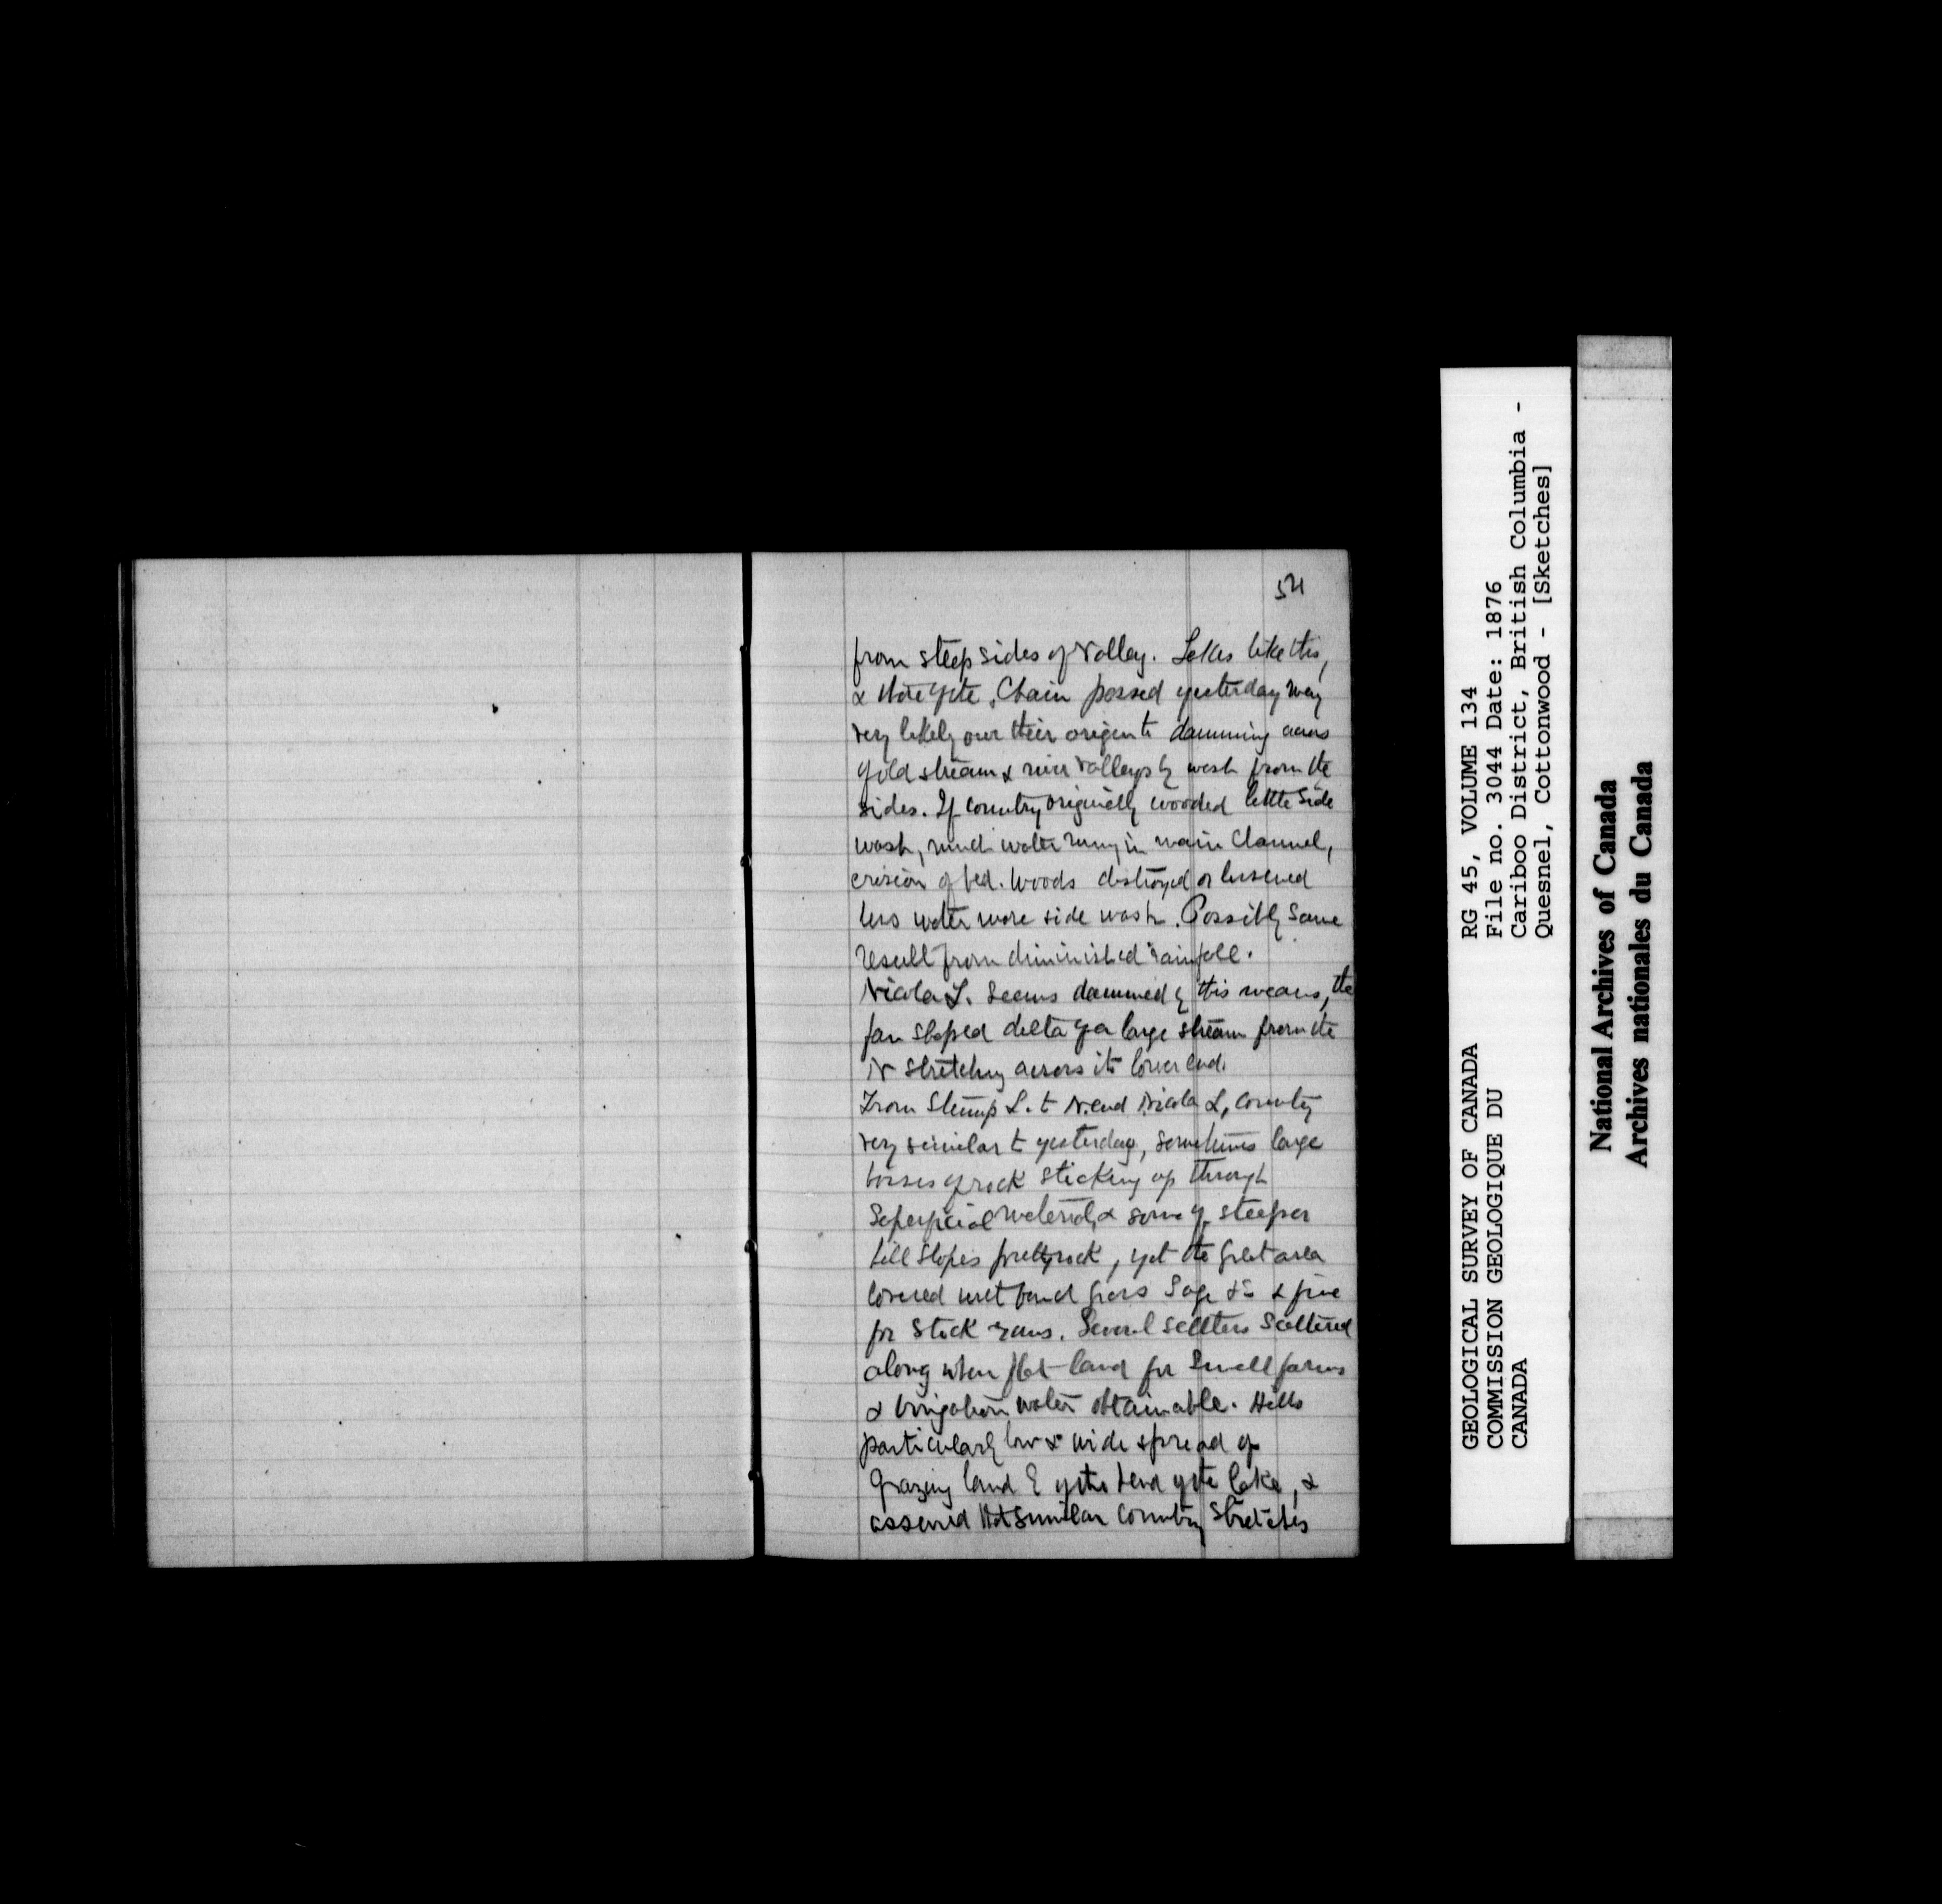 54
from steep sides of valley. Lakes like this,
& those of the Chain passed yesterday may
very likely owe their origin to damming across
of old stream & river valleys by wash from the
sides. If country originally wooded little side
wash, much water runng in main channel,
erosion of bed. Woods destroyed or lessened
less water more side wash. Possibly same
result from diminished rainfall.
Nicola L. seems dammed by this means, the
fan shaped delta of a large stream from the
N stretching across its lower end.
From Stump L. to N. end Nicola L, country
very similar to yesterday, sometimes large
bosses of rock sticking up through
superficial material, & some of steeper
hill slopes pretty rock, yet the great area
covered with bunch grass Sage &c & fine
for stock runs. Several settlers scattered
along when flat land for small farms
& irrigation water obtainable. Hills
particularly low & wide spread of
grazing land E of the bend of the lake, &
assured that similar country stretches
GEOLOGICAL SURVEY OF CANADA
COMMISSION GEOLOGIQUE DU
CANADA
RG 45, VOLUME 134
File no. 3044 Date: 1876
Cariboo District, British Columbia -
Quesnel, Cottonwood - [Sketches]
National Archives of Canada
Archives nationales du Canada